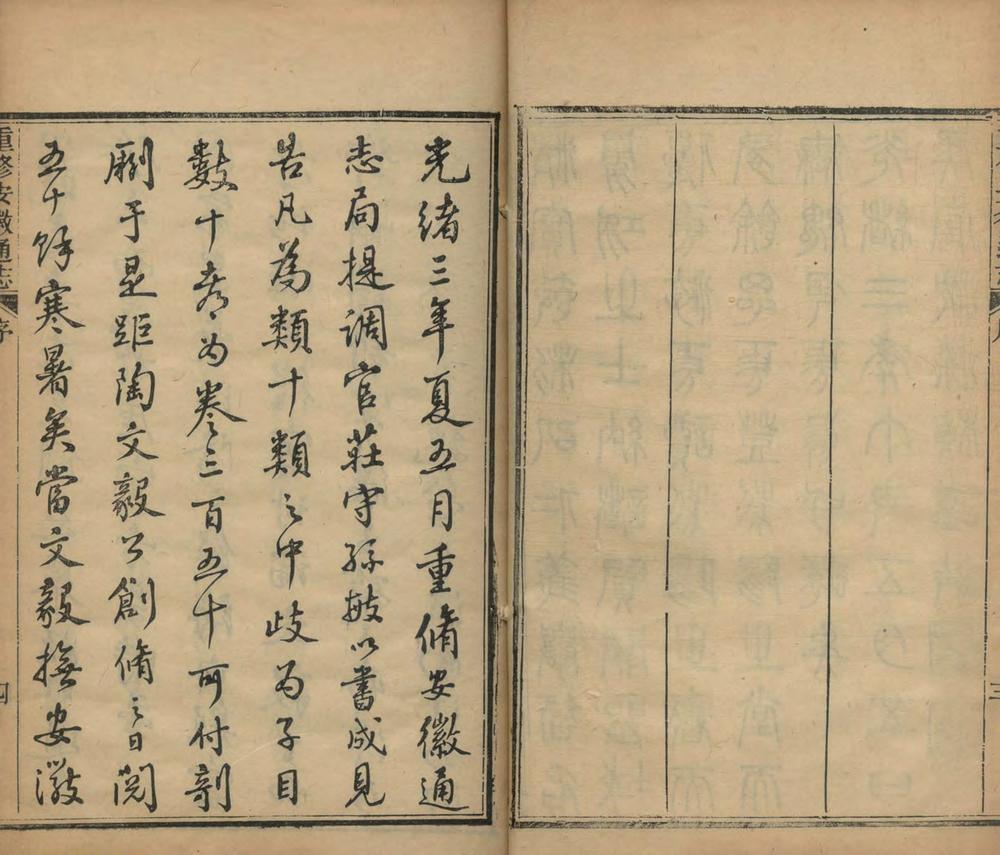 光緒三年夏五月重脩安徽通
志局提調官莊守孫敏以書成見
告凡為類十類之中歧為子目
數十都為卷三百五十所付剞
劂于是距陶文毅公創脩之日閱
五十餘寒暑矣當文毅撫安徽
重修安徽通志
序
四
三